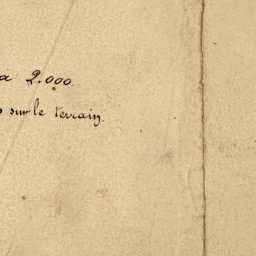 a 2.000.
sur le terrain.